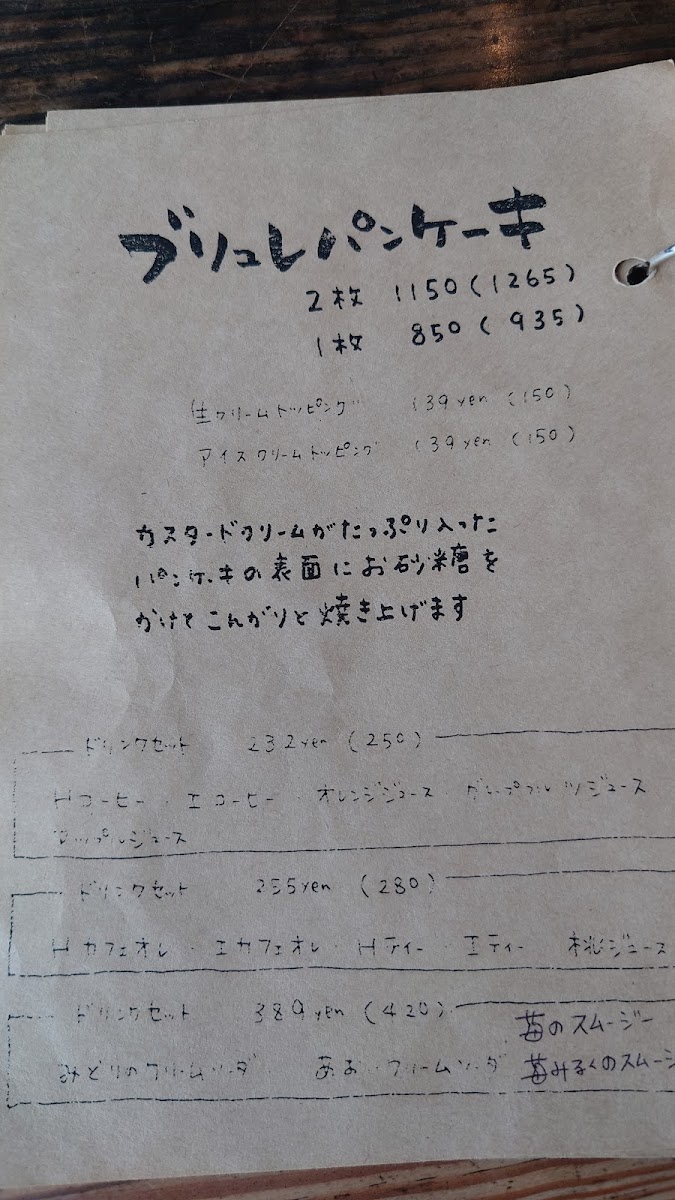 ブリュレパンケーキ
2枚 1150(1265)
1枚 850(935)
生クリームトッピング 139yen(150)
アイスクリームトッピング 139yen(150)
カスタードクリームがたっぷり入った
パンケーキの表面にお砂糖を
かけてこんがりと焼き上げます
ドリンクセット 232yen(250)
Hコーヒー・エコーヒー・オレンジジュース・グレープフルーツジュース
アップルジュース
ドリンクセット 255yen(280)
Hカフェオレ・エカフェオレ・Hティー・エティー 桃ジュース
ドリンクセット 389yen(420) 苺のスムージー
みどりのクリームソーダ あおいクリームソーダ 苺みるくのスムージ